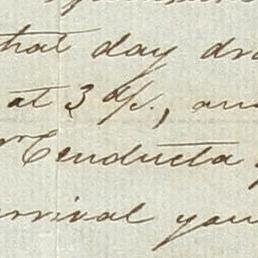 that day dra
at 3 d/., and
Conducta
arrival you